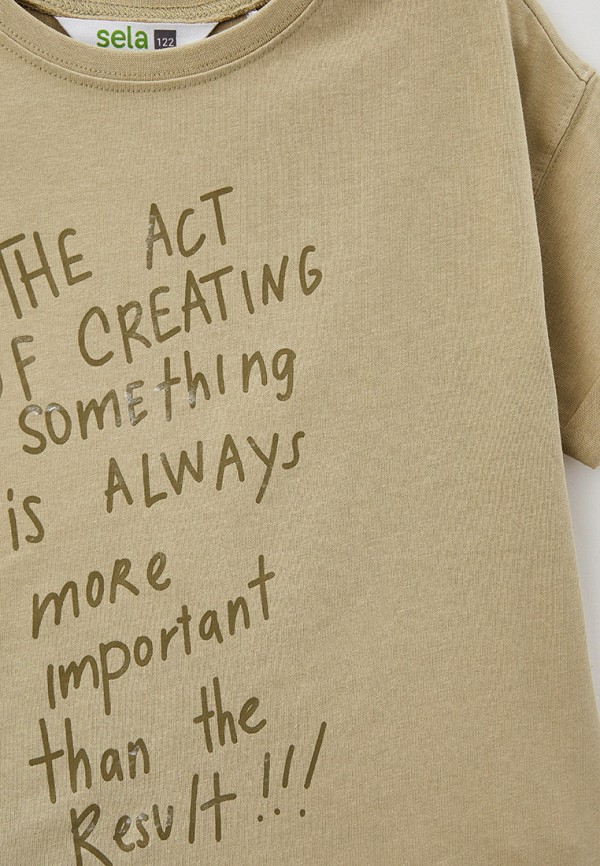 sela 122
THE ACT
OF CREATING
SOMEthING
is ALWAYS
moRe
important
than the
ResulT!!!